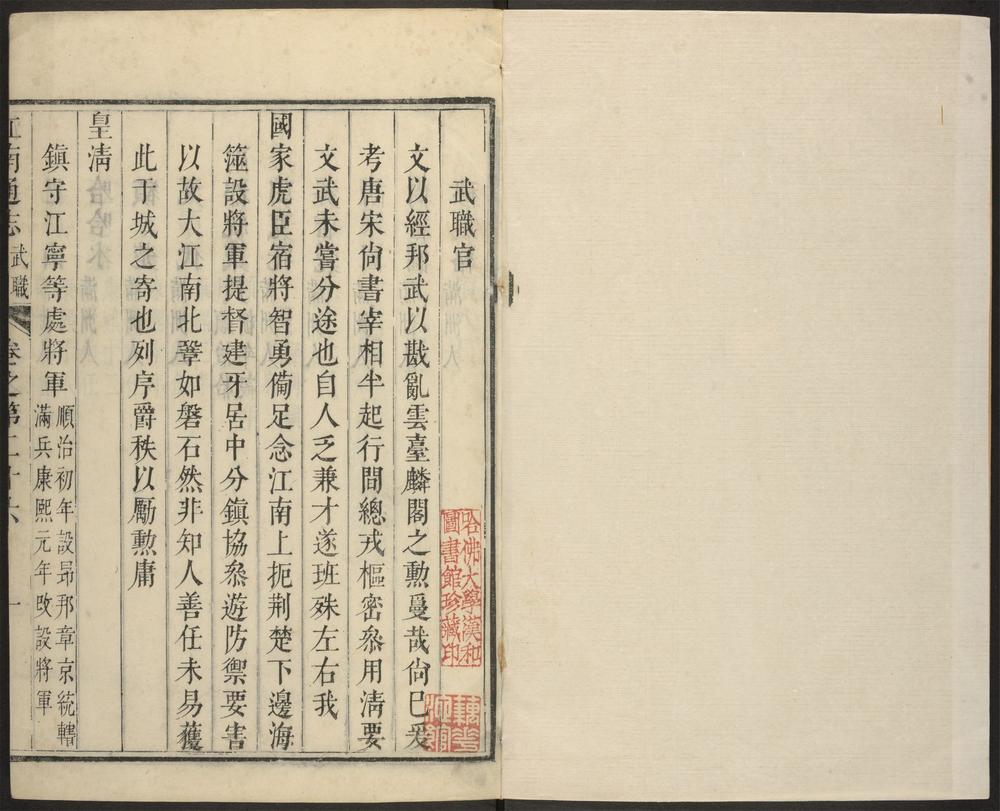 武職官
文以經邦武以戡亂雲臺麟閣之勲敻哉尙已爰
考唐宋尙書宰相半起行間總戎樞密叅用淸要
文武未嘗分途也自人乏兼才遂班殊左右我
國家虎臣宿將智勇備足念江南上扼荆楚下邊海
筵設將軍提督建牙居中分鎭協叅遊防禦要害
以故大江南北鞏如磐石然非知人善任未易獲
此于城之寄也列序爵秩以勵勲庸
皇淸
鎭守江寧等處將軍順治初年設昻邦章京統轄
滿兵康熙元年改設將軍
江南通志 武職 卷之第二十六 一
哈佛大學漢和
圖書館珍藏印